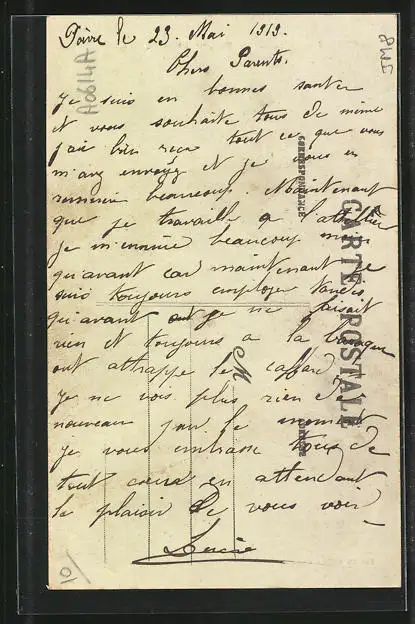 Poivre le 23. Mai 1919.
Chers Parents.
Je suis en bonnes santer
et vous souhaite tous de même
j'ai bien recu tout ce que vous
m'avez envoyez et je vous en
remercie beaucoup. Maintenant
que je travaille a l'attellier
je m'ennuie beaucoup moin
qu'avant car maintenant je
suis toujours employer tandis
qu'avant on je ne faisait
rien et toujours a la
ont attrappe le caffard
je ne vois plus rien de
nouveau pour le moment
je vous embrasse tous de
tout coeur en attendant
le plaisir de vous voir
Lucie
CARTE POSTALE
CORRESPONDANCE
M
A0614A
10/